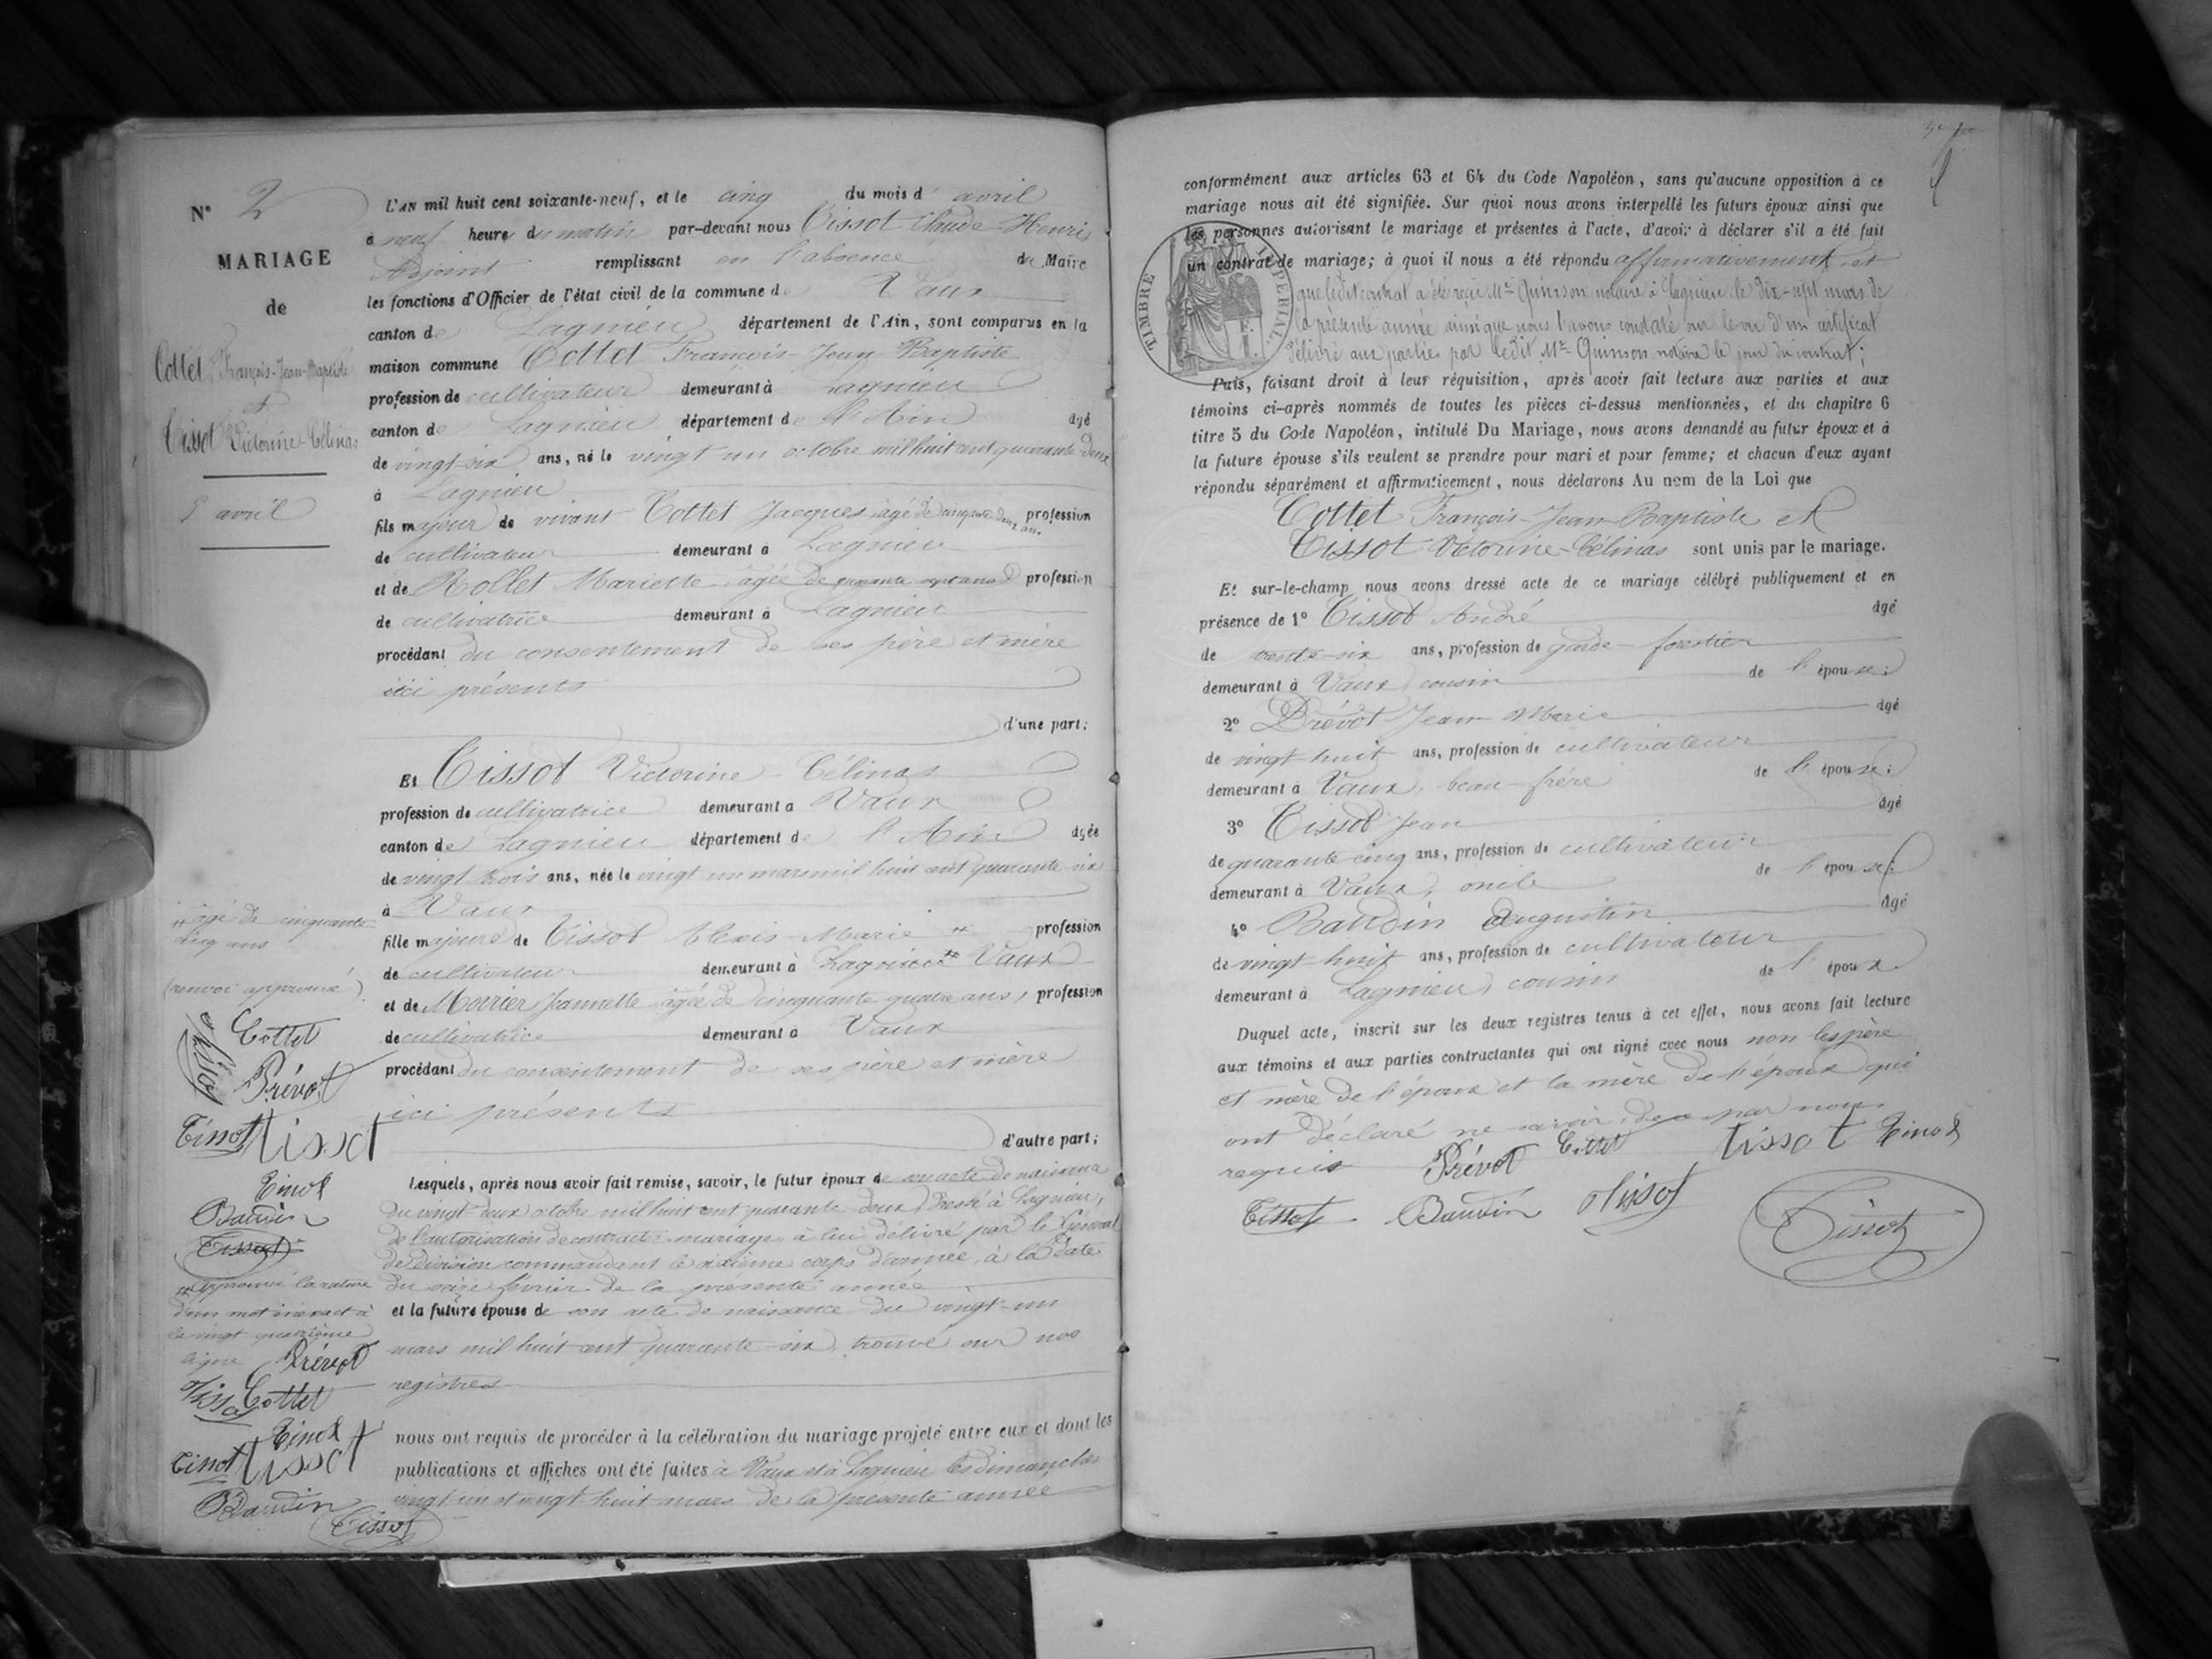 N° 2
MARIAGE
de
Cottet François-Jean-Baptiste
et
Tissot Victorine-Célinas
5 avril
L'AN mil huit cent soixante-neuf, et le cinq du mois d'avril
à neuf heures du matin par-devant nous Tissot Claude-Henri
Adjoint remplissant en l'absence du Maire
les fonctions d'Officier de l'état civil de la commune de Vaux
canton de Lagnieu département de l'Ain, sont comparus en la
maison commune Cottet François-Jean-Baptiste
profession de cultivateur demeurant à Lagnieu
canton de Lagnieu département de l'Ain âgé
de vingt-six ans, né le vingt un octobre mil huit cent quarante-deux
à Lagnieu
fils majeur de vivant Cottet Jacques, âgé de cinquante deux ans, profession
de cultivateur demeurant à Lagnieu
et de Rollet Mariette âgée de ans profession
de cultivatrice demeurant à Lagnieu
procédant du consentement de ses père et mère
ici présents
d'une part;
Et Tissot Victorine-Célinas
profession de cultivatrice demeurant à Vaux
canton de Lagnieu département de l'Ain âgée
de vingt trois ans, née le vingt un mars mil huit cent quarante six
à Vaux
fille majeure de Tissot Alexis-Marie # profession
de cultivateur demeurant à Lagnieu # Vaux
et de Moirier Jeannette, âgée de cinquante quatre ans, profession
de cultivatrice demeurant à Vaux
procédant du consentement de ses père et mère
ici présents
d'autre part;
Lesquels, après nous avoir fait remise, savoir, le futur époux de son acte de naissance
du vingt-deux octobre mil huit cent quarante deux, dressé à Lagnieu,
de l'autorisation de contracter mariage à lui délivré par le Général
de Division commandant le sixième corps d'armée, à la date
du seize février de la présente année
et la future épouse de son acte de naissance du vingt-un
mars mil huit cent quarante-six, trouvé sur nos
registres
nous ont requis de procéder à la célébration du mariage projeté entre eux et dont les
publications et affiches ont été faites à Vaux et à Lagnieu les dimanches
vingt-un et vingt-huit mars de la présente année
# âgé de cinquante
cinq ans
(renvoi approuvé)
Cottet
Tissot
Prévot
Tissot tissot
Tissot
Baudin
Tissot
# Approuvé la rature
d'un mot inexact à
la vingt quatrième
ligne Prévot
Tissot Cottet
Tissot
Tissot tissot
Baudin
Tissot
conformément aux articles 63 et 64 du Code Napoléon, sans qu'aucune opposition à ce
mariage nous ait été signifiée. Sur quoi nous avons interpellé les futurs époux ainsi que
les personnes autorisant le mariage et présentes à l'acte, d'avoir à déclarer s'il a été fait
un contrat de mariage; à quoi il nous a été répondu affirmativement, et
que ledit contrat a été reçu Me Quinson notaire à Lagnieu le dix-sept mars de
la présente année ainsi que nous l'avons constaté sur le vu d'un certificat
délivré aux parties par ledit Me Quinson notaire le jour du contrat;
TIMBRE IMPERIAL
Puis, faisant droit à leur réquisition, après avoir fait lecture aux parties et aux
témoins ci-après nommés de toutes les pièces ci-dessus mentionnées, et du chapitre 6
titre 5 du Code Napoléon, intitulé Du Mariage, nous avons demandé au futur époux et à
la future épouse s'ils veulent se prendre pour mari et pour femme; et chacun d'eux ayant
répondu séparément et affirmativement, nous déclarons Au nom de la Loi que
Cottet François-Jean-Baptiste et
Tissot Victorine-Célinas sont unis par le mariage.
Et sur-le-champ nous avons dressé acte de ce mariage célébré publiquement et en
présence de 1° Tissot André âgé
de trente-six ans, profession de garde-forestier
demeurant à Vaux, cousin de l'épouse;
2° Prévot Jean-Marie âgé
de vingt-huit ans, profession de cultivateur
demeurant à Vaux, beau-frère de l'épouse;
3° Tissot Jean âgé
de quarante cinq ans, profession de cultivateur
demeurant à Vaux, oncle de l'épouse;
4° Baudin Augustin âgé
de vingt-huit ans, profession de cultivateur
demeurant à Lagnieu, cousin de l'époux.
Duquel acte, inscrit sur les deux registres tenus à cet effet, nous avons fait lecture
aux témoins et aux parties contractantes qui ont signé avec nous non les père
et mère de l'époux et la mère de l'épouse qui
ont déclaré ne savoir, de ce par nous
requis Prévot Cottet tissot Tissot
Tissot Baudin Tissot
Tissot